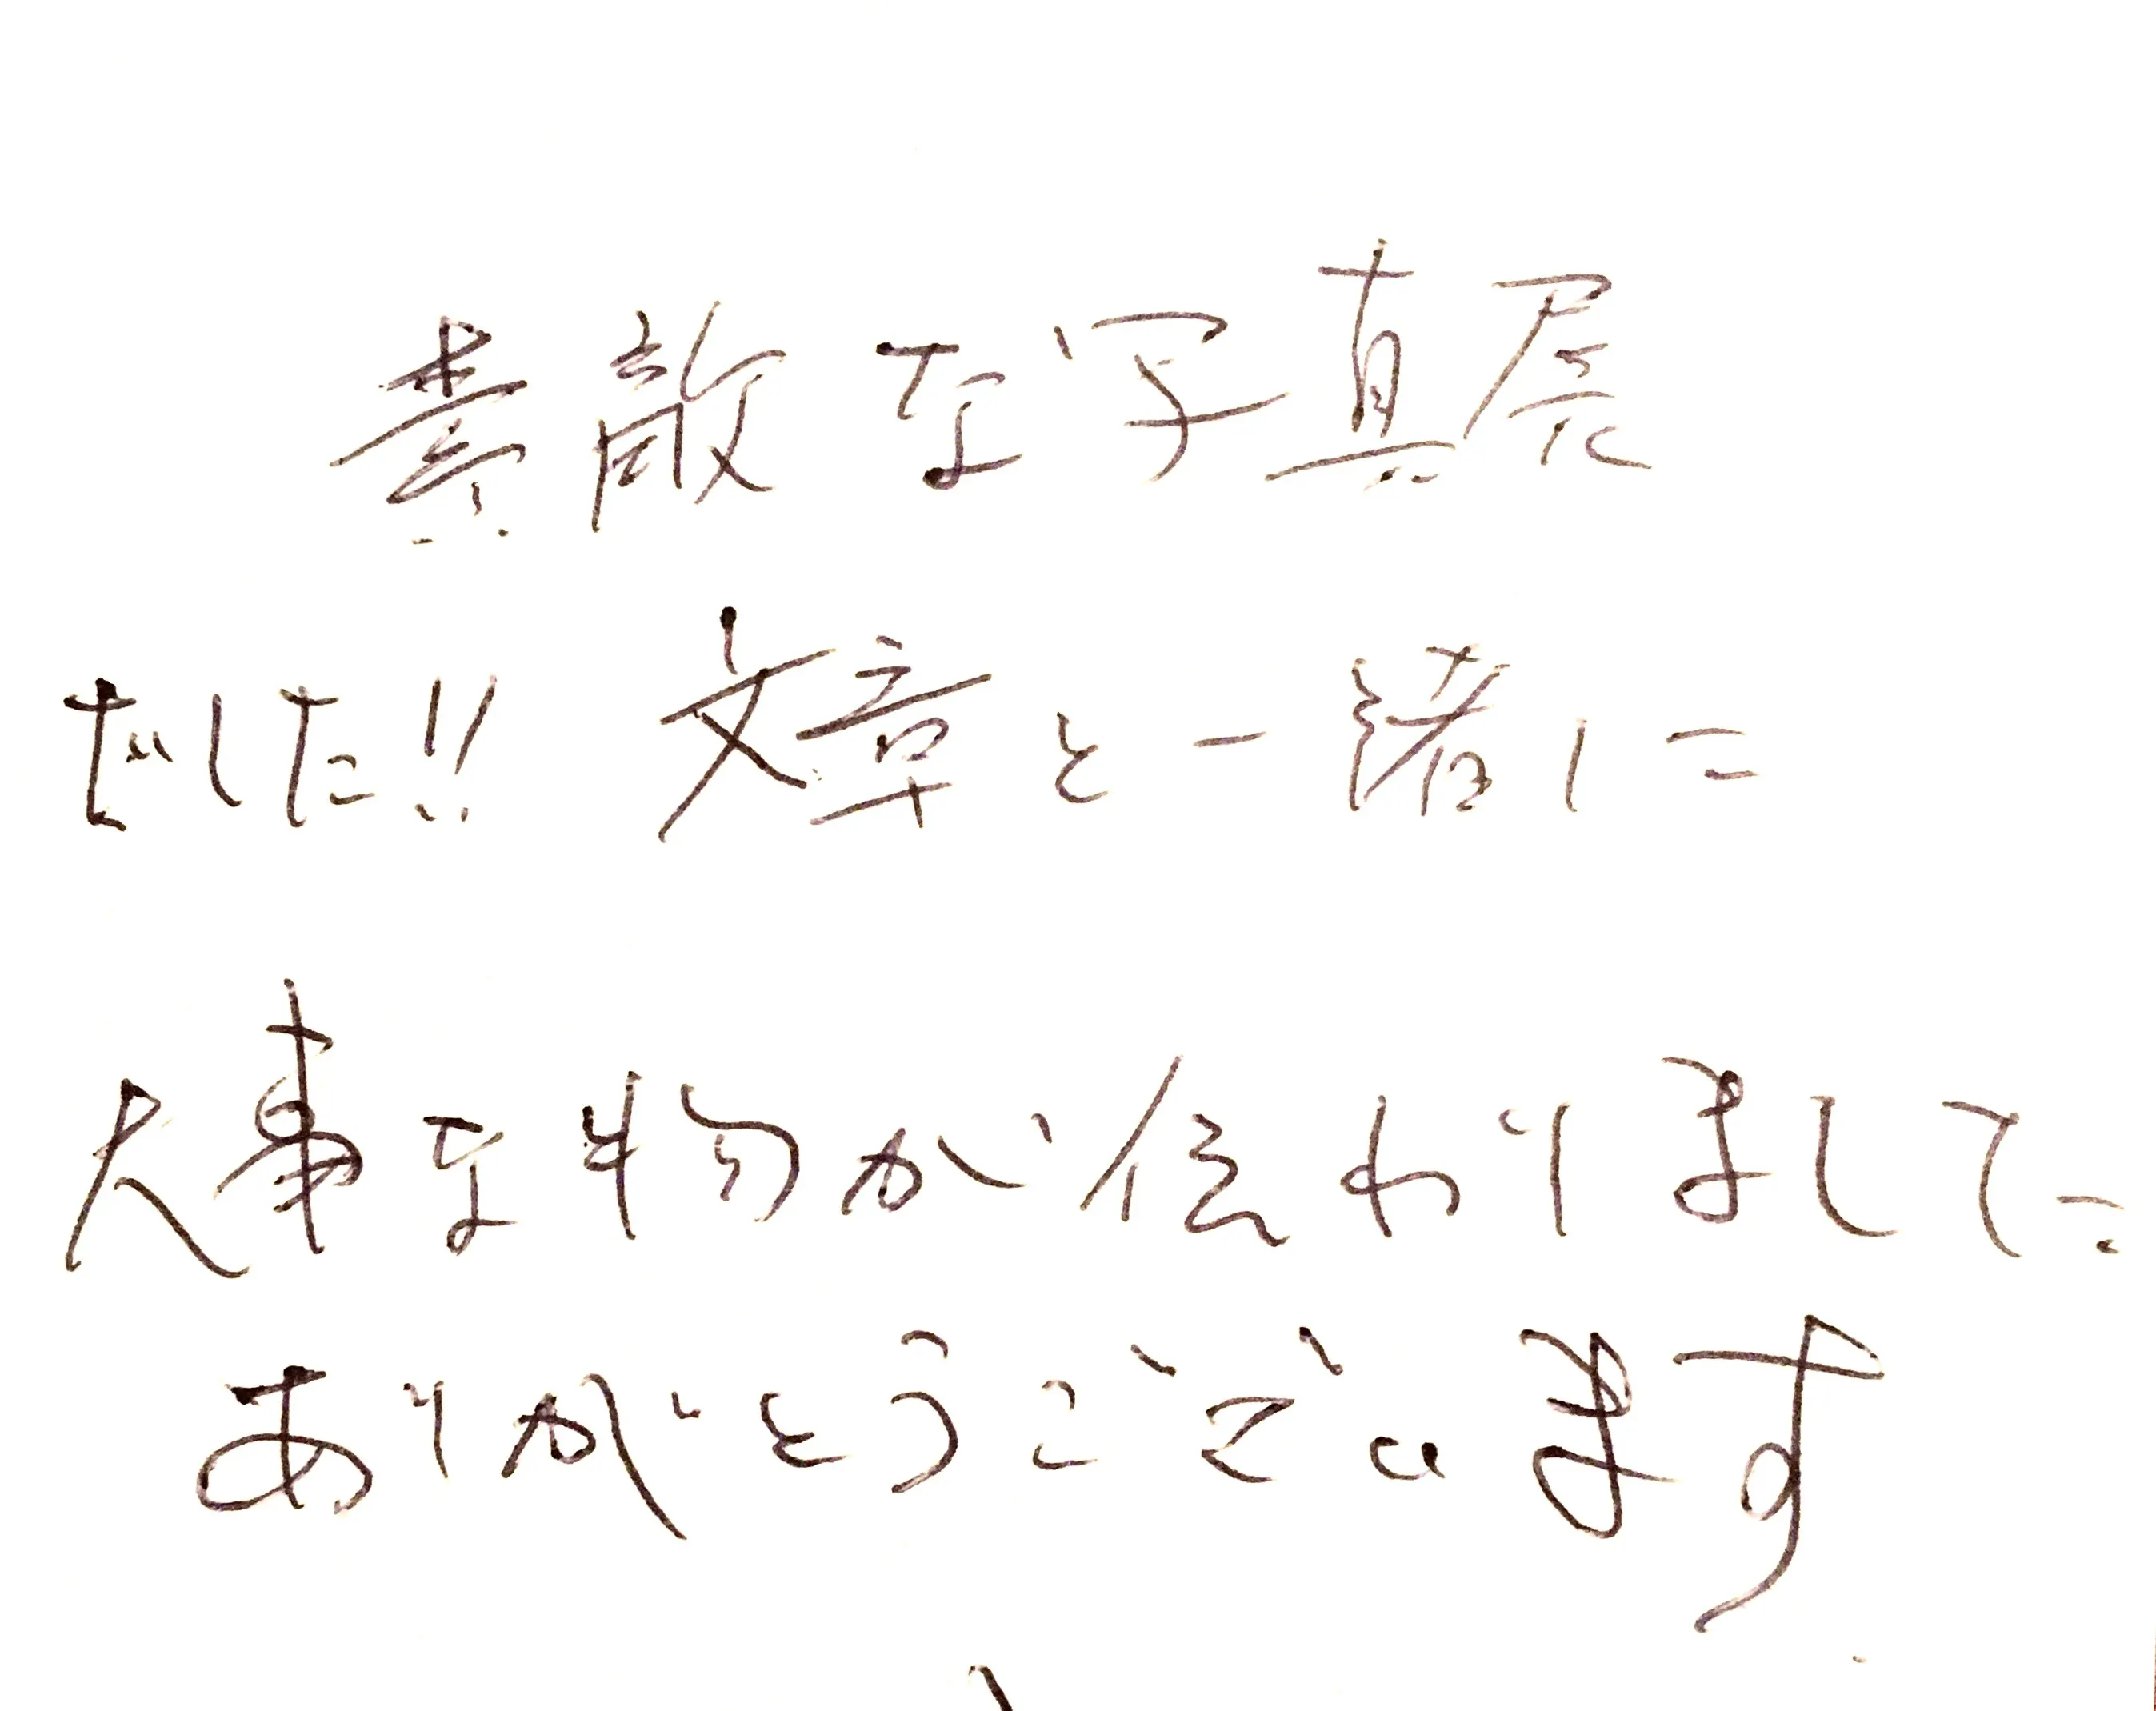 素敵な写真展
でした!! 文章と一緒に
大事な物が伝わりまして
ありがとうございます